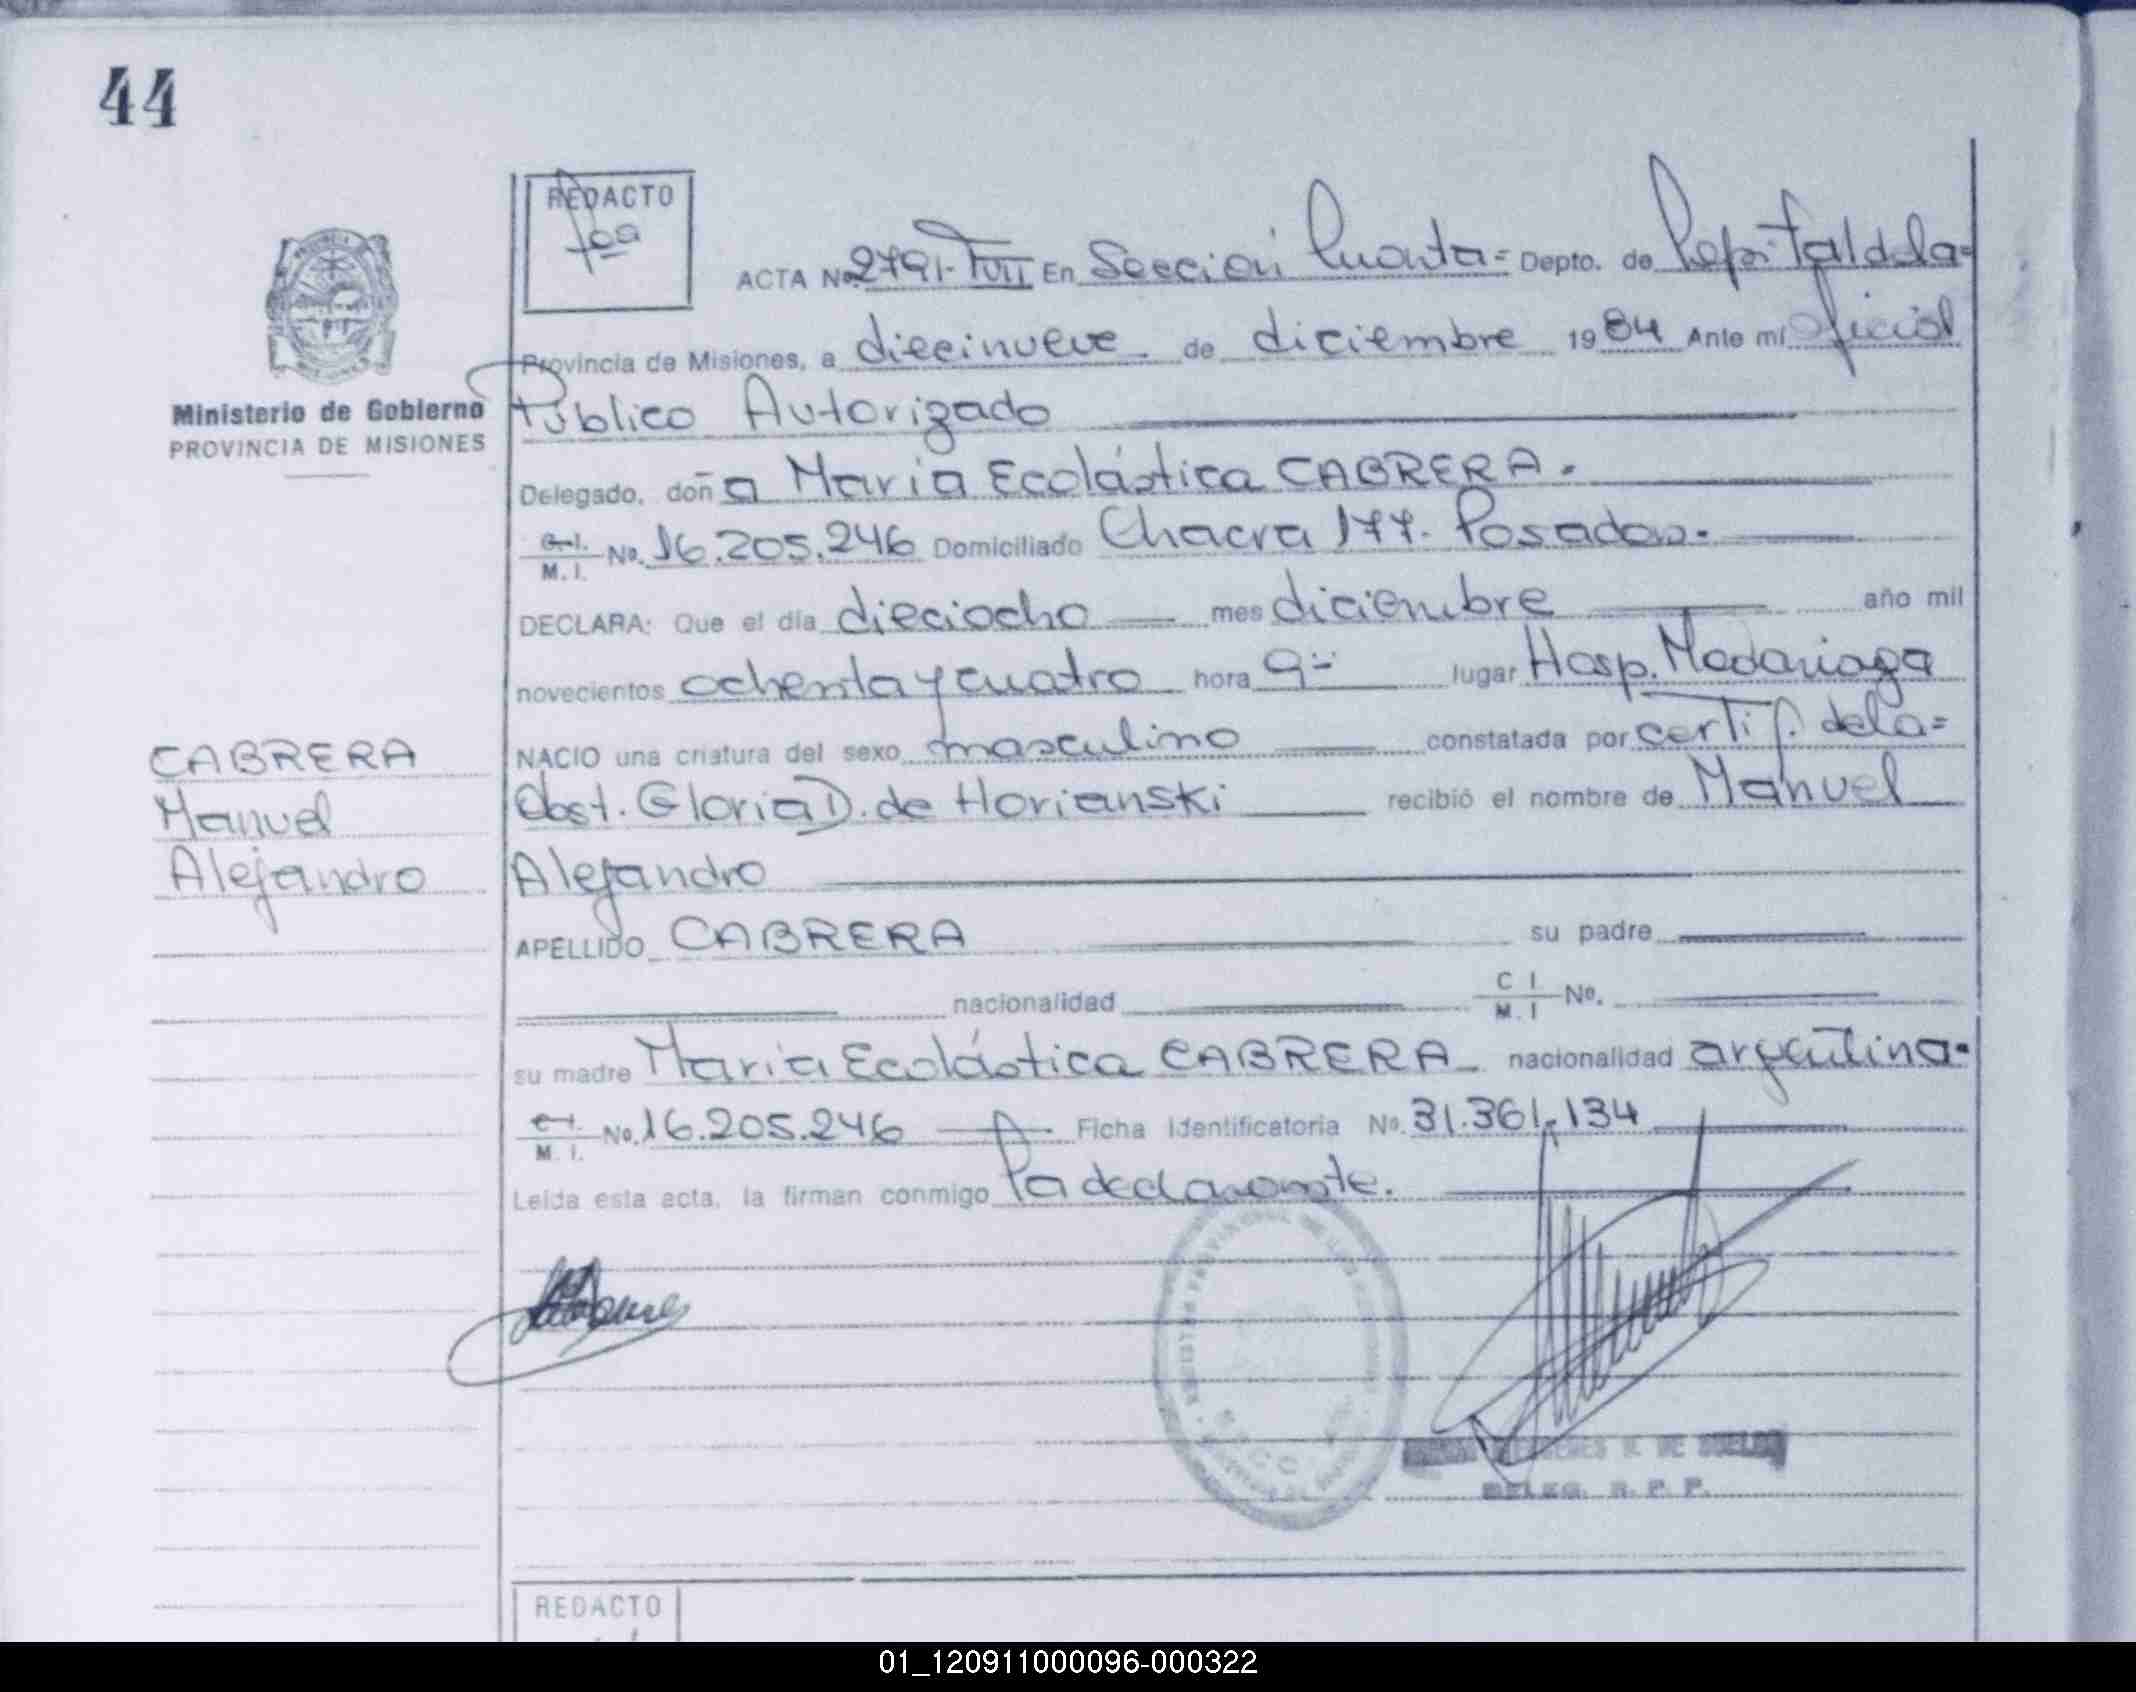 44
REDACTO
ACTA No. 2791- TVII En Sección Cuarta= Depto. de Capital de la=
Provincia de Misiones, a diecinueve de diciembre 1984 Ante mí Oficial
Público Autorizado
Ministerio de Gobierno
PROVINCIA DE MISIONES
Delegado, doña María Ecolástica CABRERA.
C.I. M.I. No. 16.205.246 Domiciliado Chacra 177. Posadas.
DECLARA: Que el día dieciocho mes diciembre año mil
novecientos ochenta y cuatro hora 9= lugar Hosp. Madariaga
NACIO una criatura del sexo masculino constatada por certif. de la=
Obst. Gloria D. de Horianski recibió el nombre de Manuel
Alejandro
CABRERA
Manuel
Alejandro
APELLIDO CABRERA su padre
nacionalidad C I M.I No.
su madre María Ecolástica CABRERA nacionalidad argentina.
C.I. M.I. No. 16.205.246 Ficha Identificatoria No. 31.361.134
Leída esta acta, la firman conmigo la declarante.
DE SUELDO
DELEG. R. P. P.
REDACTO
01_120911000096-000322